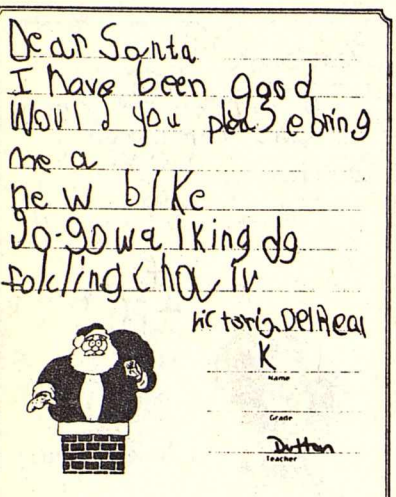 Dear Santa
I have been good
Would you please bring
me a
new bike
go-go walking dg
folding chair
Victoria DelReal
K
Name
Grade
Dutton
Teacher